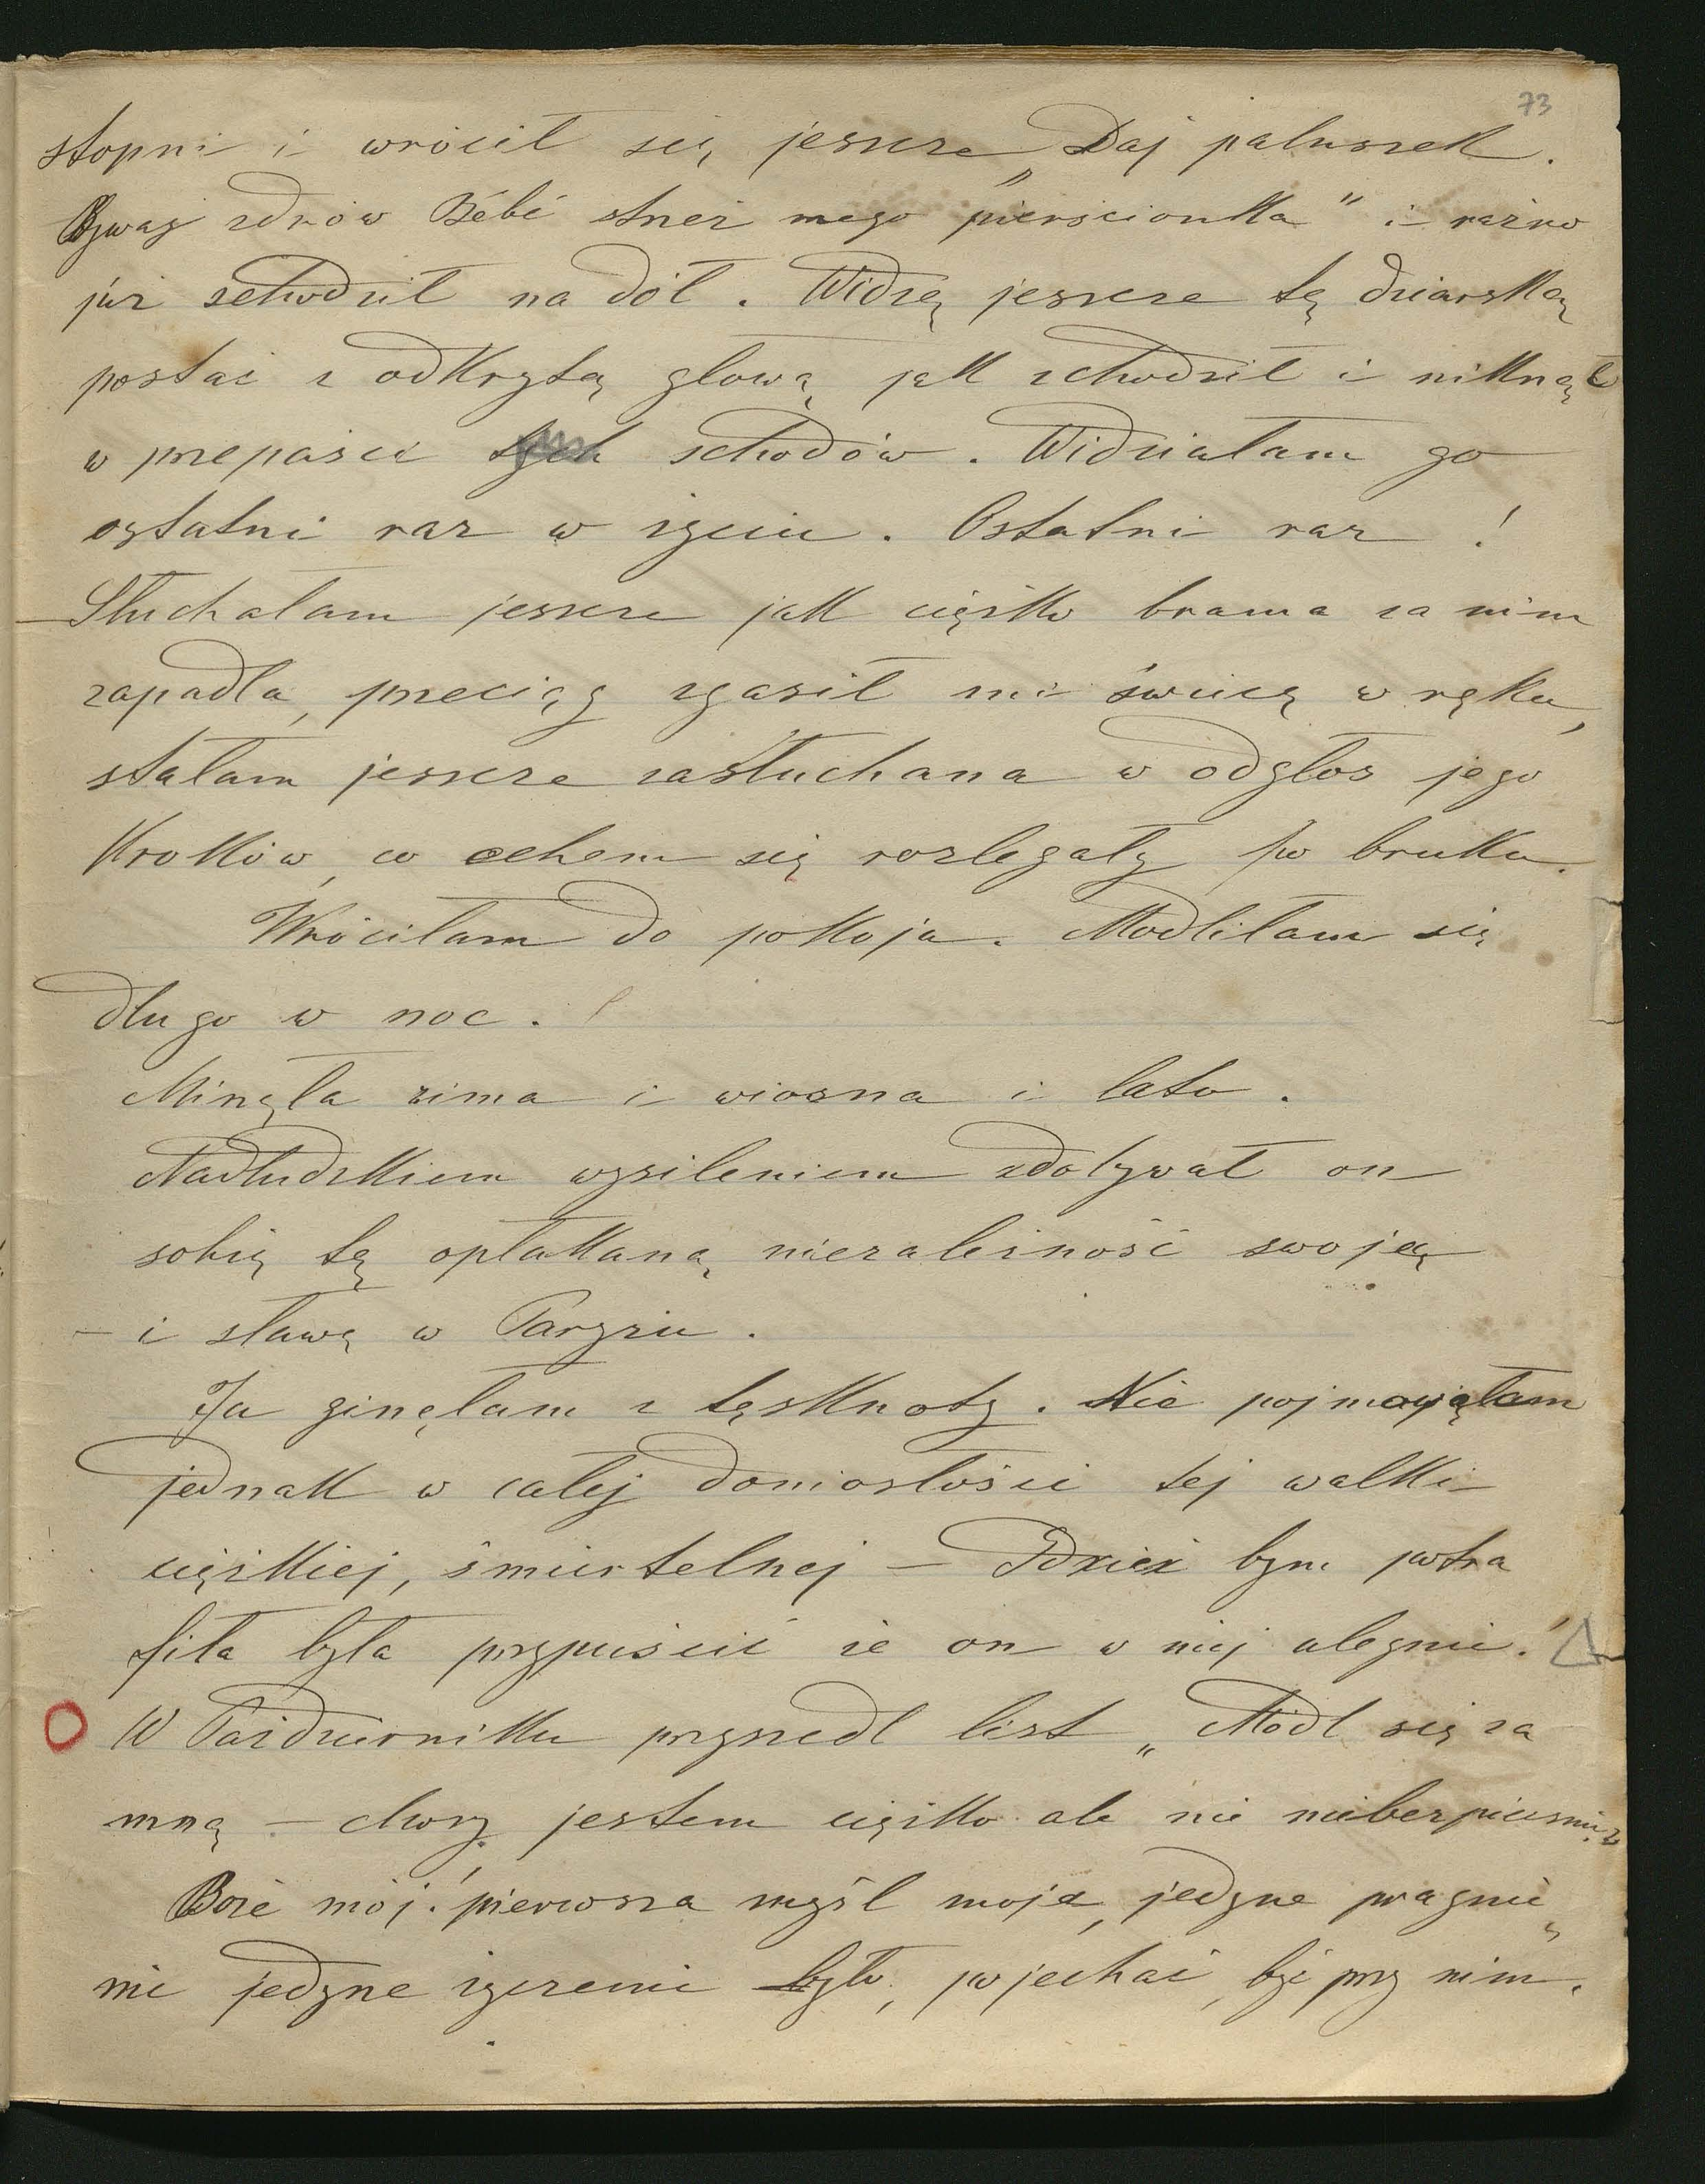 73
stopni i wrócił się jeszcze „Daj paluszek.
Bywaj zdrów Bébé strzeż mego pierścionka" i raźno
już schodził na dół. Widzę jeszcze tę dziarską
postać z odkrytą głową jak schodził i niknął
w przepaści tych schodów. Widziałam go
ostatni raz w życiu. Ostatni raz!
Słuchałam jeszcze jak ciężko brama za nim
zapadła, przeciąg zgasił mi świecę w ręku,
stałam jeszcze zasłuchana w odgłos jego
kroków, co echem się rozlegały po bruku.
Wróciłam do pokoju. Modliłam się
długo w noc.
Minęła zima i wiosna i lato.
Nadludzkiem wysileniem zdobywał on
sobię tę opłakaną niezależność swoją
– i sławę w Paryżu.
Ja ginęłam z tęsknoty. Nie pojmowałam
jednak w całej doniosłości tej walki
ciężkiej, śmiertelnej – Gdzież bym potra
fiła była przypuścić że on w niej ulegnie!
W Październiku przyszedł list „Módl się za
mną – chory jestem ciężko ale nie niebezpiecznie"
Boże mój! pierwsza myśl moja, jedyne pragnie„
nie jedyne życzenie było, pojechać, być przy nim.